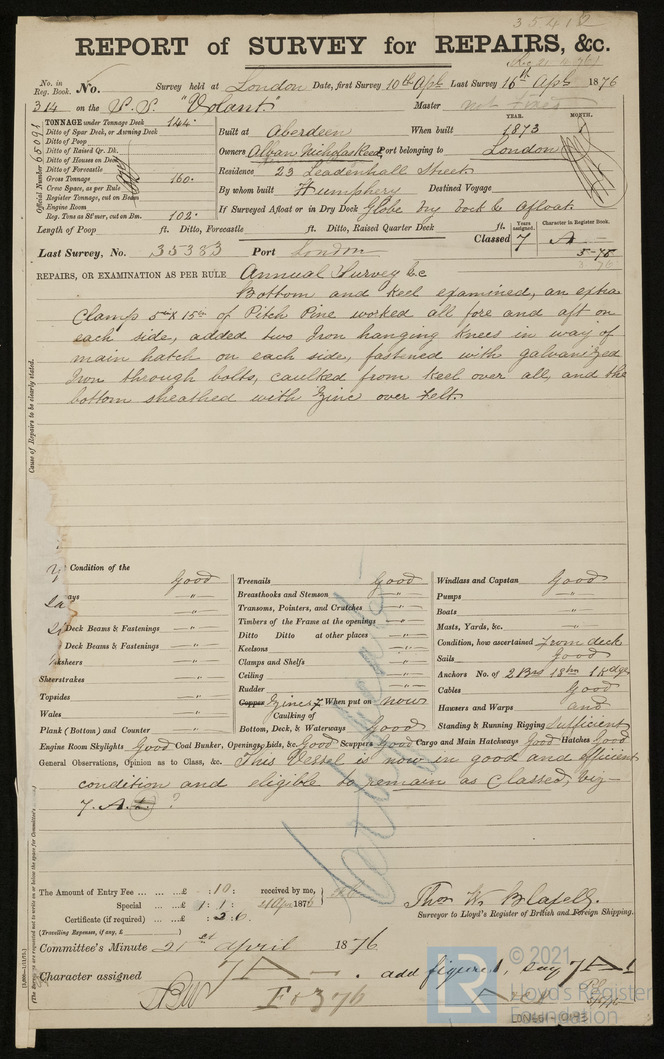 35412
REPORT of SURVEY for REPAIRS, &c.
No. in Reg. Book. No. Survey held at London Date, first Survey 10th Apl Last Survey 16th Apl 1876
314 on the S.S. "Volant" Master
TONNAGE under Tonnage Deck 144.
Ditto of Spar Deck, or Awning Deck
Ditto of Poop
Ditto of Raised Qr. Dk.
Ditto of Houses on Deck
Ditto of Forecastle
Gross Tonnage 160.
Crew Space, as per Rule
Register Tonnage, cut on Beam
Engine Room
Reg. Tons as St'mer, cut on Bm. 102.
Official Number 65091
YEAR. MONTH.
Built at Aberdeen When built 1873 1
Owners Alban Nicholas Reed Port belonging to London
Residence 23 Leadenhall Street
By whom built Humphery Destined Voyage
If Surveyed Afloat or in Dry Dock Globe Dry Dock & Afloat
Length of Poop ft. Ditto, Forecastle ft. Ditto, Raised Quarter Deck ft.
Years assigned. Character in Register Book.
Classed 7 A
5-75
Last Survey, No. 35333 Port London
REPAIRS, OR EXAMINATION AS PER RULE Annual Survey &c
Bottom and keel examined, an extra
Clamp 5in x 15in of Pitch Pine worked all fore and aft on
each side, added two Iron hanging knees in way of
main hatch on each side, fastened with galvanized
Iron through bolts, caulked from keel over all, and the
bottom sheathed with Zinc over felt.
Cause of Repairs to be clearly stated.
Condition of the
Good
Deck Beams & Fastenings "
Deck Beams & Fastenings "
Sheerstrakes "
Topsides "
Wales "
Plank (Bottom) and Counter "
Treenails Good
Breasthooks and Stemson "
Transoms, Pointers, and Crutches "
Timbers of the Frame at the openings "
Ditto Ditto at other places "
Keelsons "
Clamps and Shelfs "
Ceiling "
Rudder "
Copper Zinc When put on now
Caulking of
Bottom, Deck, & Waterways Good
Windlass and Capstan Good
Pumps "
Boats "
Masts, Yards, &c. "
Condition, how ascertained From deck
Sails Good
Anchors No. of 2 Brs 1 Stm 1 Kdge
Cables Good
Hawsers and Warps and
Standing & Running Rigging Sufficient
Engine Room Skylights Good Coal Bunker, Openings, Lids, &c. Good Scuppers Good Cargo and Main Hatchways Good Hatches Good
General Observations, Opinion as to Class, &c. This Vessel is now in good and efficient
condition and eligible to remain as Classed, viz
7. A. 1 ?
The Amount of Entry Fee ... ... ...£ : 10 : received by me,
Special ... ...£ 1 : 1 : Apr 1876
Certificate (if required) ...£ : 2 : 6.
(Travelling Expenses, if any, £ )
Surveyor to Lloyd's Register of British and Foreign Shipping.
Committee's Minute 21st April 1876
Character assigned 7 A . add figure 1, say 7 A 1
F&3 76
© 2021
Lloyd's Register
Foundation
LR